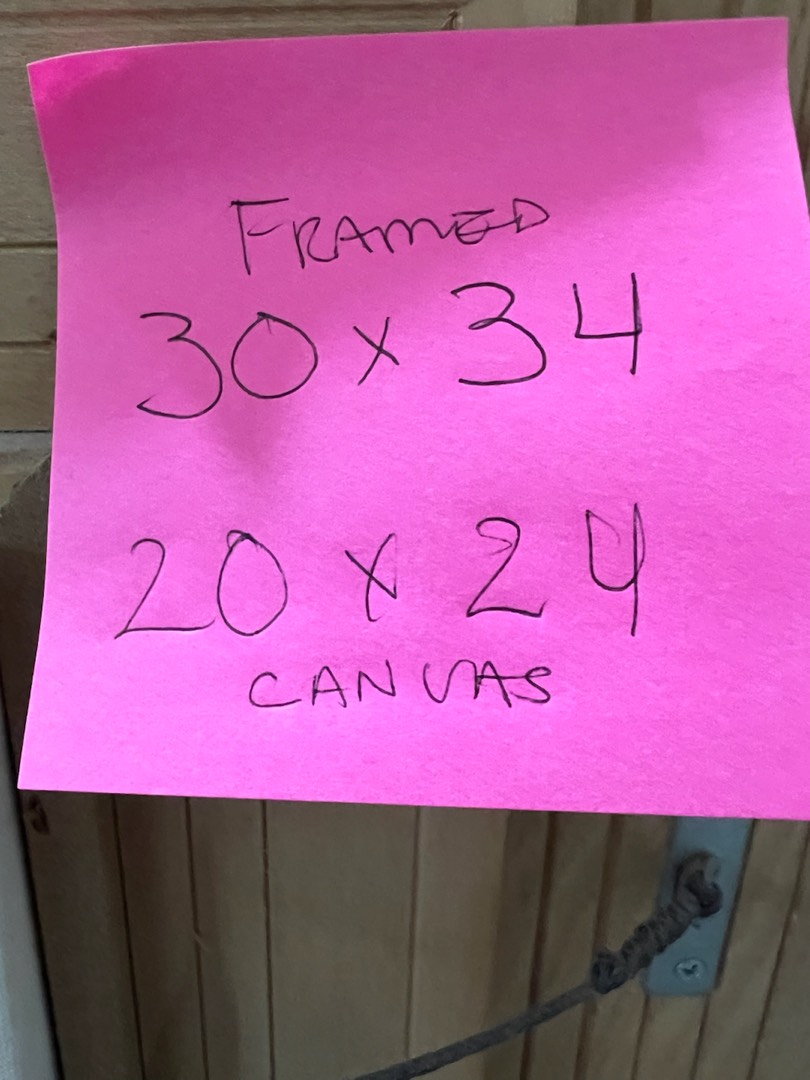 FRAMED
30 x 34
20 x 24
CANVAS